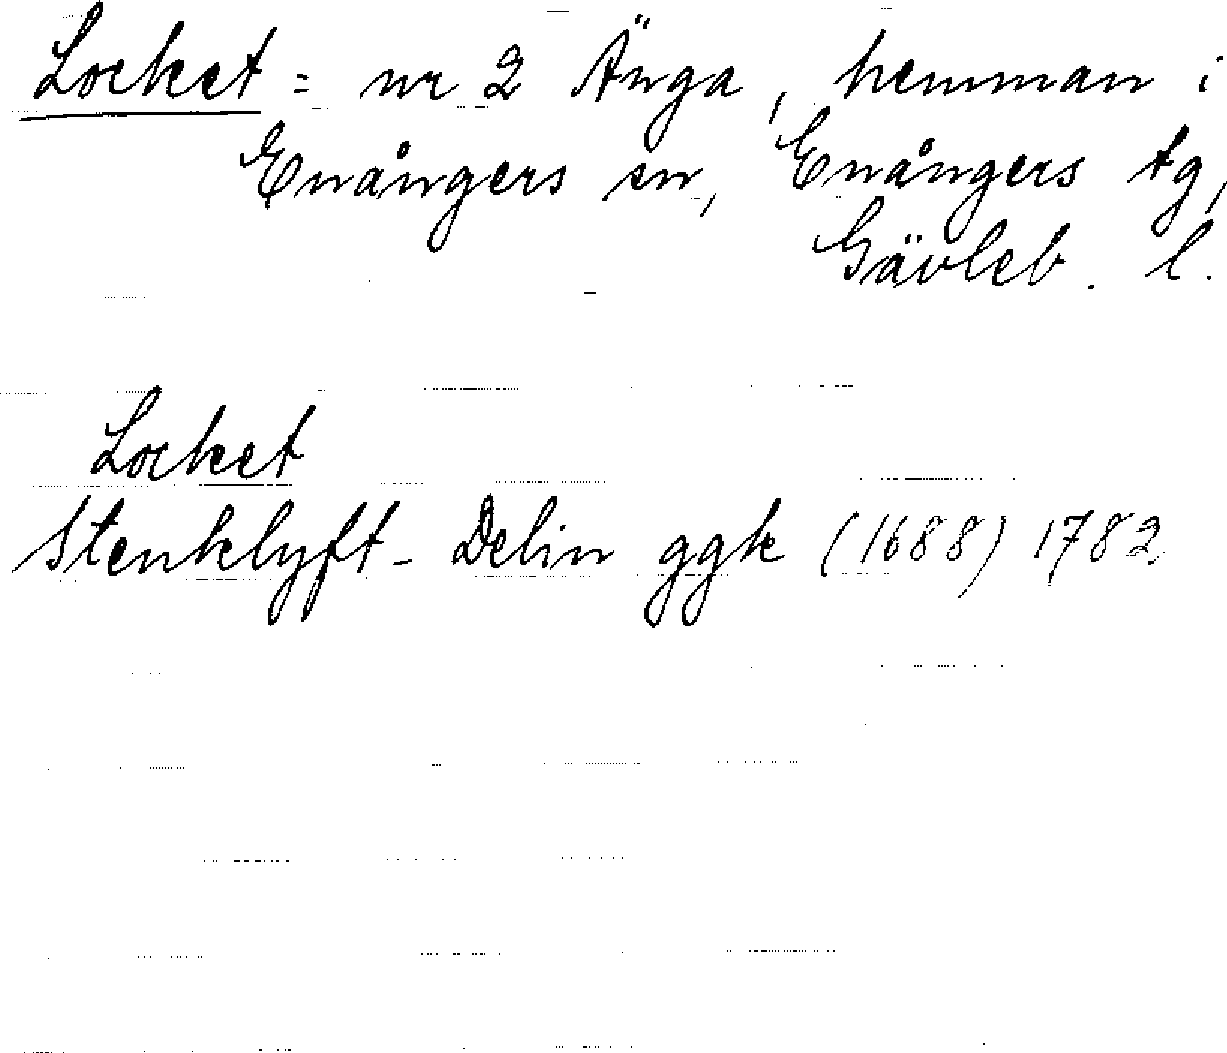 Locket = nr 2 Änga, hemman i
Enångers sn, Enångers tg,
Gävleb. l.
Locket
Stenklyft - Delin ggk (1688) 1782